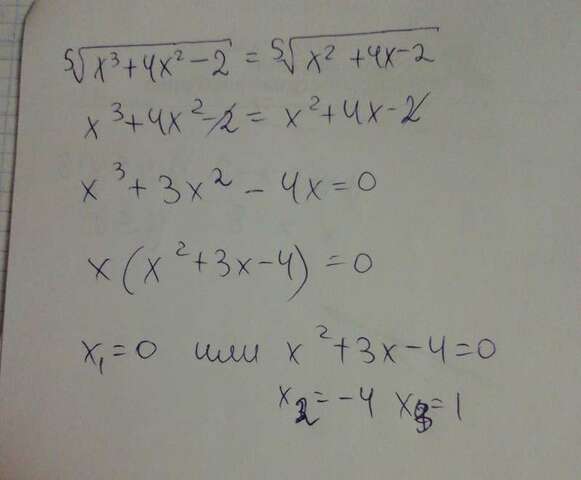 ⁵√(x³+4x²−2) = ⁵√(x²+4x−2)
x³+4x²−2 = x²+4x−2
x³+3x²−4x=0
x(x²+3x−4)=0
x₁=0 или x²+3x−4=0
x₂=−4 x₃=1